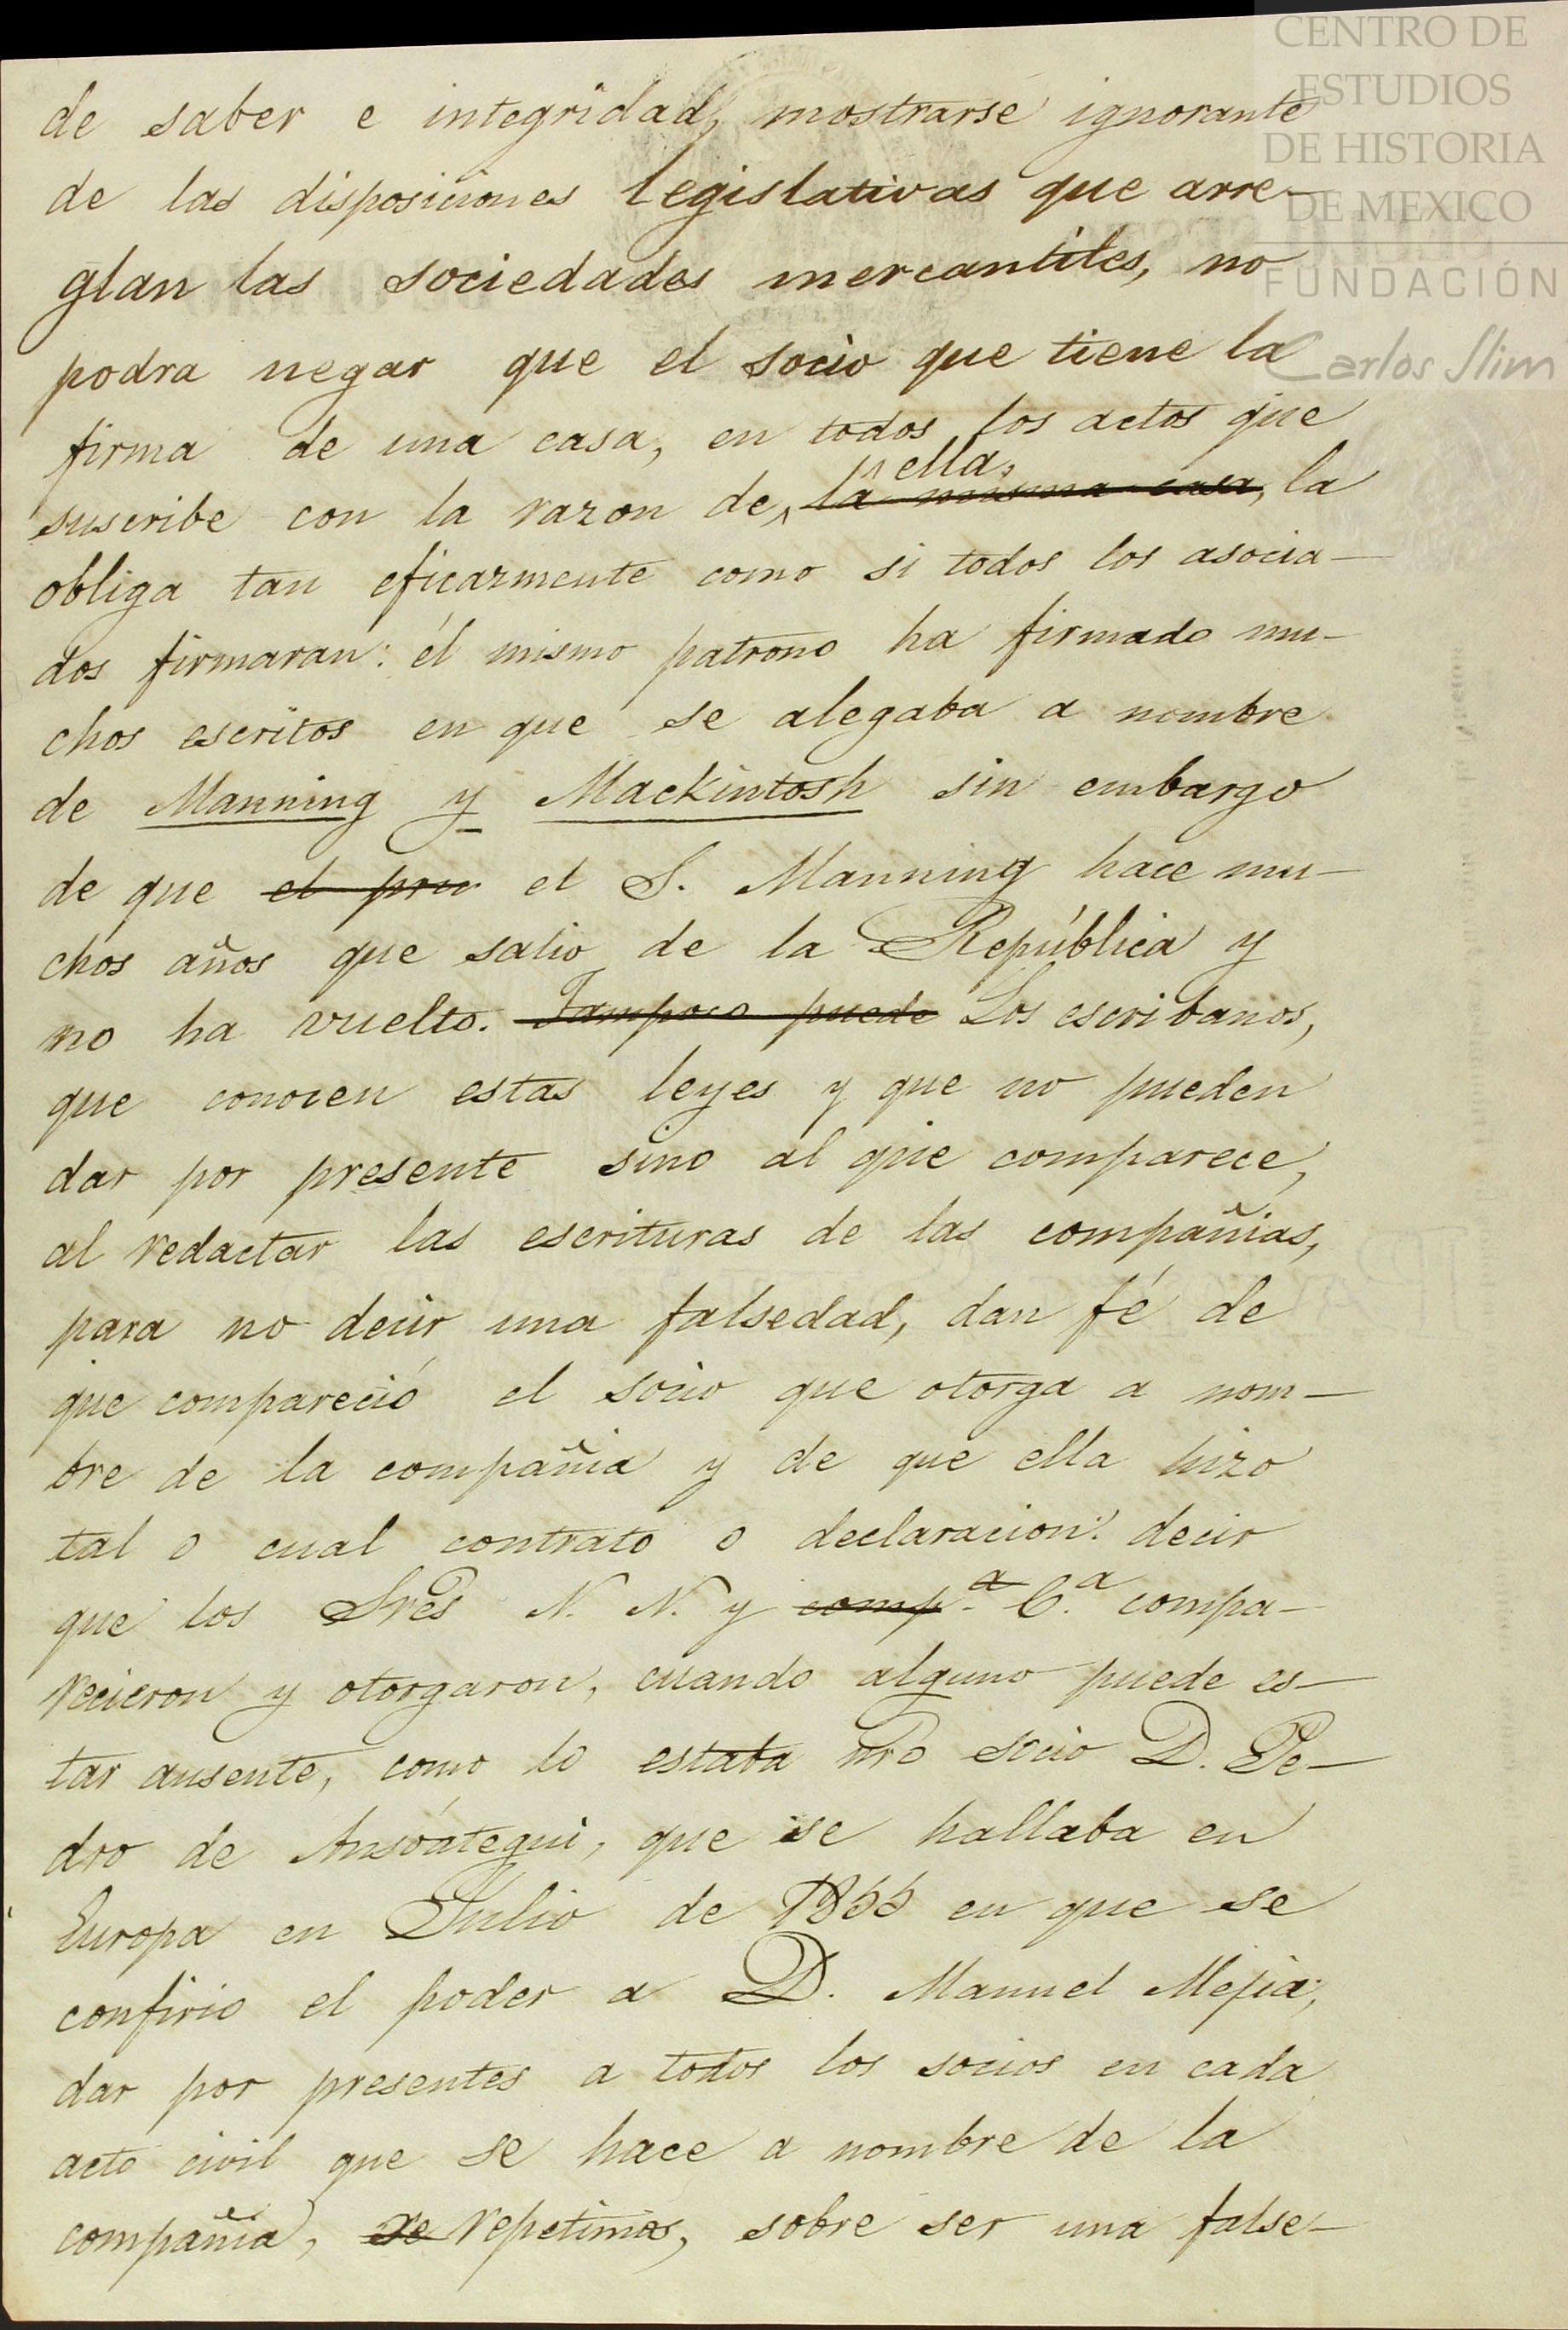 CENTRO DE
ESTUDIOS
DE HISTORIA
DE MEXICO
FUNDACIÓN
Carlos Slim
de saber e integridad, mostrarse ignorante
de las disposiciones legislativas que arre-
glan las sociedades mercantiles, no
podra negar que el socio que tiene la
firma de una casa, en todos los actos que
suscribe con la razon de ella, la misma casa, la
obliga tan eficazmente como si todos los asocia-
dos firmaran: él mismo patrono ha firmado mu-
chos escritos en que se alegaba a nombre
de Manning y Mackintosh sin embargo
de que el pru el S. Manning hace mu-
chos años que salio de la República y
no ha vuelto. Tampoco puede Los escribanos,
que conocen estas leyes y que no pueden
dar por presente sino al que comparece,
al redactar las escrituras de las compañias,
para no decir una falsedad, dan fé de
que compareció el socio que otorga a nom-
bre de la compañia y de que ella hizo
tal o cual contrato o declaracion: decir
que los Sres N. N. y comp.a C.a compa-
recieron y otorgaron, cuando alguno puede es-
tar ausente, como lo estaba nro socio D. Pe-
dro de Ansóategui, que se hallaba en
Europa en Julio de 1855 en que se
confirio el poder a D. Manuel Mejia;
dar por presentes a todos los socios en cada
acto civil que se hace a nombre de la
compañia, re repetimos, sobre ser una false-